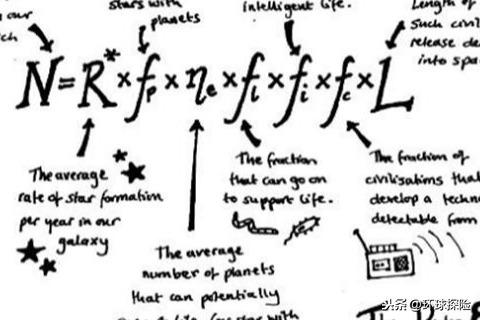 our
stars with
planets
intelligent life.
Length of
such civil
release de
into spa
N=R*×fp×ηe×fl×fi×fc×L
The average
rate of star formation
per year in our
galaxy
The average
number of planets
that can potentially
The fraction
that can go on
to support life.
The fraction of
civilisations tha
develop a techn
detectable from
头条 @环球探险